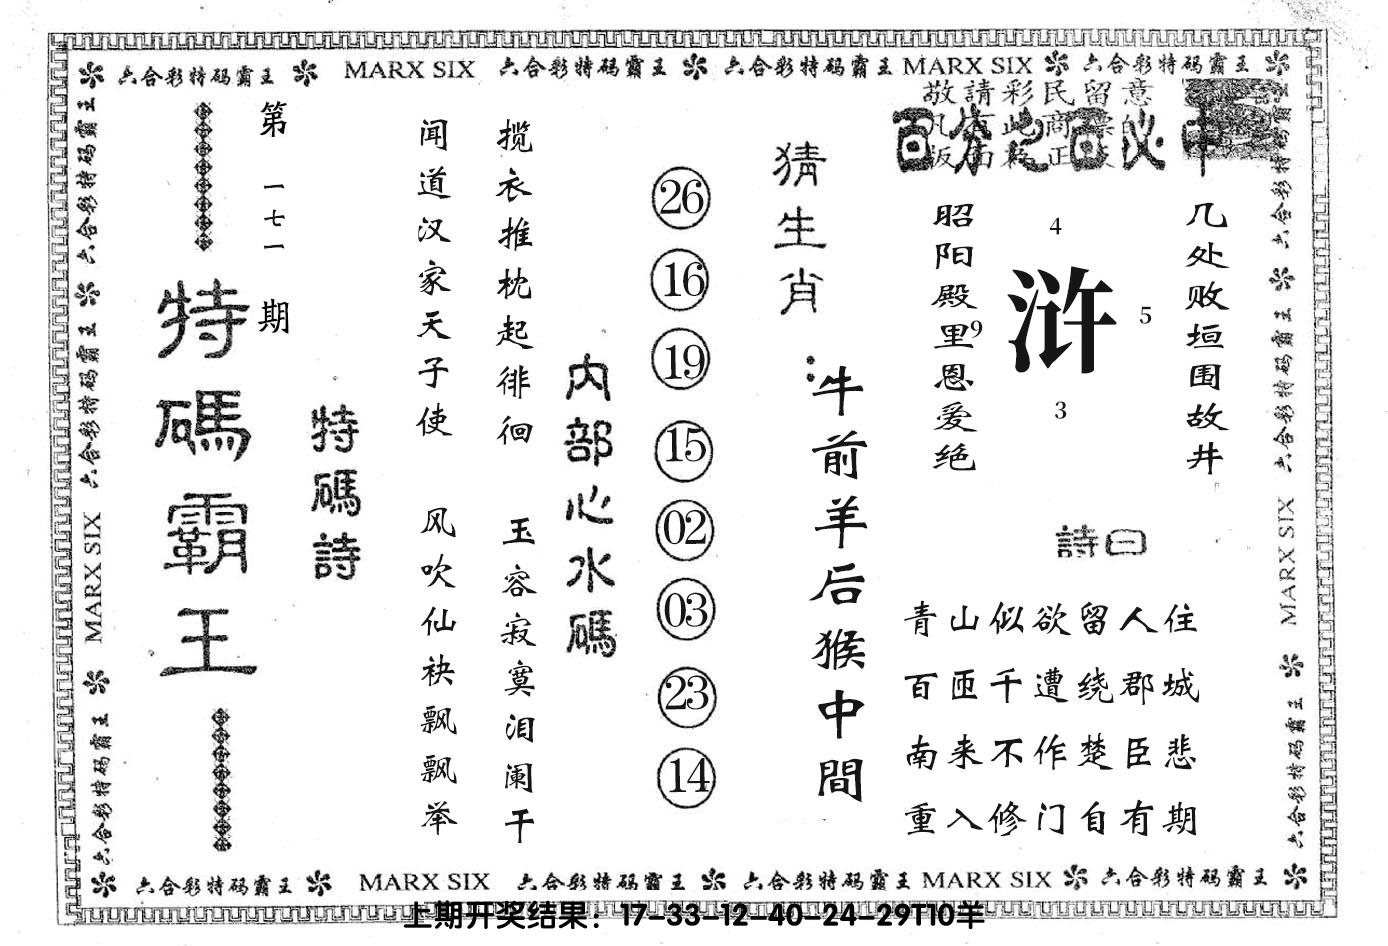 六合彩特码霸王 MARX SIX 六合彩特码霸王 六合彩特码霸王 MARX SIX 六合彩特码霸王
敬請彩民留意
百分之百必中
几处败垣围故井
昭阳殿里恩爱绝
4
浒
9
5
3
詩曰
青山似欲留人住
百匝千遭绕郡城
南来不作楚臣悲
重入修门自有期
猜生肖：
牛前羊后猴中間
26
16
19
15
02
03
23
14
内部心水碼
揽衣推枕起徘徊
玉容寂寞泪阑干
闻道汉家天子使
风吹仙袂飘飘举
特碼詩
第一七一期
特碼霸王
六合彩特码霸王
六合彩特码霸王
MARX SIX
六合彩特码霸王
六合彩特码霸王
六合彩特码霸王
MARX SIX
六合彩特码霸王
六合彩特码霸王 MARX SIX 六合彩特码霸王 六合彩特码霸王 MARX SIX 六合彩特码霸王
上期开奖结果：17-33-12-40-24-29T10羊